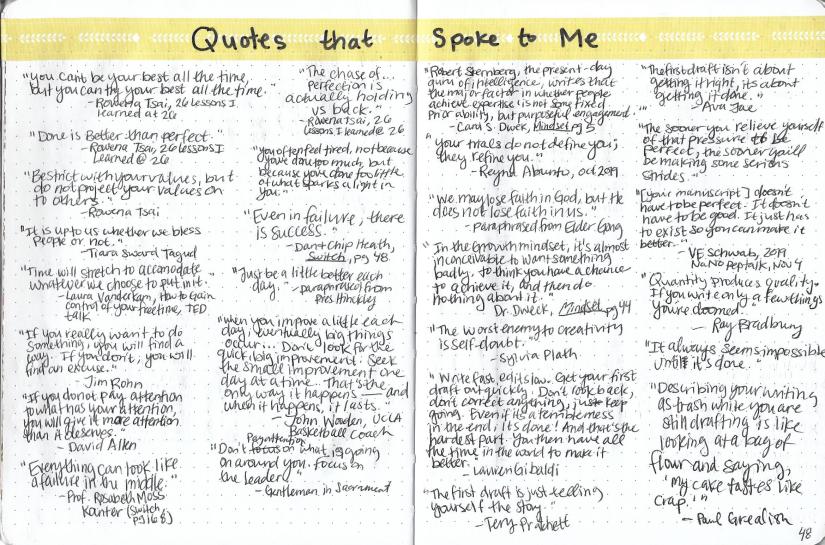 Quotes that Spoke to Me
"You can't be your best all the time,
but you can try your best all the time."
- Rowena Tsai, 26 Lessons I
learned at 26
"Done is Better than perfect."
- Rowena Tsai, 26 Lessons I
Learned @ 26
"Be strict with your values, but
do not project your values on
to others."
- Rowena Tsai
"It is up to us whether we bless
people or not."
- Tiara Sward Tagud
"Time will stretch to accomodate
whatever we choose to put in it."
- Laura Vanderkam, How to Gain
control of your free time, TED
talk
"If you really want to do
something, you will find a
way. If you don't, you will
find an excuse."
- Jim Rohn
"If you do not pay attention
to what has your attention,
you will give it more attention
than it deserves."
- David Allen
"Everything can look like
a failure in the middle."
- Prof. Rosabeth Moss
Kanter (Switch
pg 168)
"The chase of...
perfection is
actually holding
us back."
- Rowena Tsai, 26
Lessons I learned @ 26
"You often feel tired, not because
you've done too much, but
because you've done too little
of what sparks a light in
you."
"Even in failure, there
is success."
- Dan + Chip Heath,
Switch, pg 48
"Just be a little better each
day." - paraphrased from
Pres Hinckley
"When you improve a little each
day, eventually big things
occur... Don't look for the
quick, big improvement. Seek
the small improvement one
day at a time. That's the
only way it happens — and
when it happens, it lasts."
- John Wooden, UCLA
Basketball Coach
"Don't pay attention on what is going
on around you. focus on
the leader."
- Gentleman in Sacrament
"Robert Sternberg, the present-day
guru of intelligence, writes that
the major factor in whether people
achieve expertise 'is not some fixed
prior ability, but purposeful engagement.'
- Carol S. Dweck, Mindset pg 5
"your trials do not define you;
they refine you."
- Reyna Aburto, Oct 2019
"We may lose faith in God, but He
does not lose faith in us."
- Paraphrased from Elder Gong
"In the Growth mindset, it's almost
inconceivable to want something
badly, to think you have a chance
to achieve it, and then do
nothing about it."
Dr. Dweck, Mindset pg 44
"The worst enemy to creativity
is self-doubt."
- Sylvia Plath
"Write fast, edit slow. Get your first
draft out quickly. Don't look back,
don't correct anything, just keep
going. Even if it's a terrible mess
in the end, its done! And that's the
hardest part. You then have all
the time in the world to make it
better."
- Lauren Gibaldi
"The first draft is just telling
yourself the story."
- Terry Pratchett
"The first draft isn't about
getting it right, its about
getting it done."
- Ava Jae
"The sooner you relieve yourself
of that pressure to be
perfect, the sooner you'll
be making some serious
strides."
"[your manuscript] doesn't
have to be perfect. It doesn't
have to be good. It just has
to exist so you can make it
better."
- VE Schwab, 2019
NaNo Peptalk, Nov 4
"Quantity produces quality.
If you write only a few things
you're doomed."
- Ray Bradbury
"It always seems impossible
until it's done."
"Describing your writing
as trash while you are
still drafting is like
looking at a bag of
flour and saying,
'my cake tastes like
crap.'"
- Paul Grealish
48